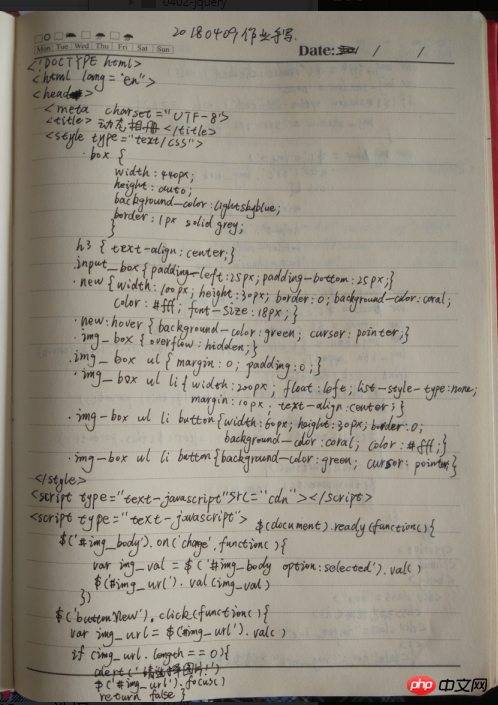 0402-jquery
20180409作业手写
Mon Tue Wed Thu Fri Sat Sun
Date: / /
<!DOCTYPE html>
<html lang="en">
<head>
<meta charset="UTF-8">
<title>动态相册</title>
<style type="text/css">
.box {
width:440px;
height:auto;
background-color:lightskyblue;
border:1px solid grey;
}
h3 { text-align:center;}
.input_box{padding-left:25px;padding-bottom:25px;}
.new{width:100px; height:30px; border:0; background-color:coral;
color:#fff; font-size:18px;}
.new:hover{background-color:green; cursor:pointer;}
.img_box { overflow:hidden;}
.img_box ul { margin:0; padding:0;}
.img_box ul li{width:200px; float:left; list-style-type:none;
margin:10px; text-align:center;}
.img-box ul li button{width:60px; height:30px; border:0;
background-color:coral; color:#fff;}
.img-box ul li button{background-color:green; cursor:pointer;}
</style>
<script type="text-javascript"src="cdn"></script>
<script type="text-javascript"> $(document).ready(function(){
$('#img_body').on('change',function(){
var img_val = $('#img_body option:selected').val()
$('#img_url').val(img_val)
})
$('buttonNew').click(function(){
var img_url = $(#img_url').val()
if (img_url.length == 0){
alert('请选择图片!')
$('#img_url').focus()
return false }
php中文网